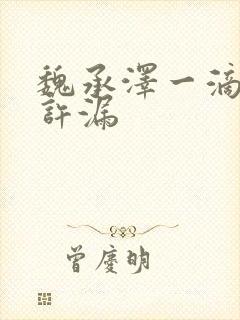 魏承澤一滴
許漏
曾慶明